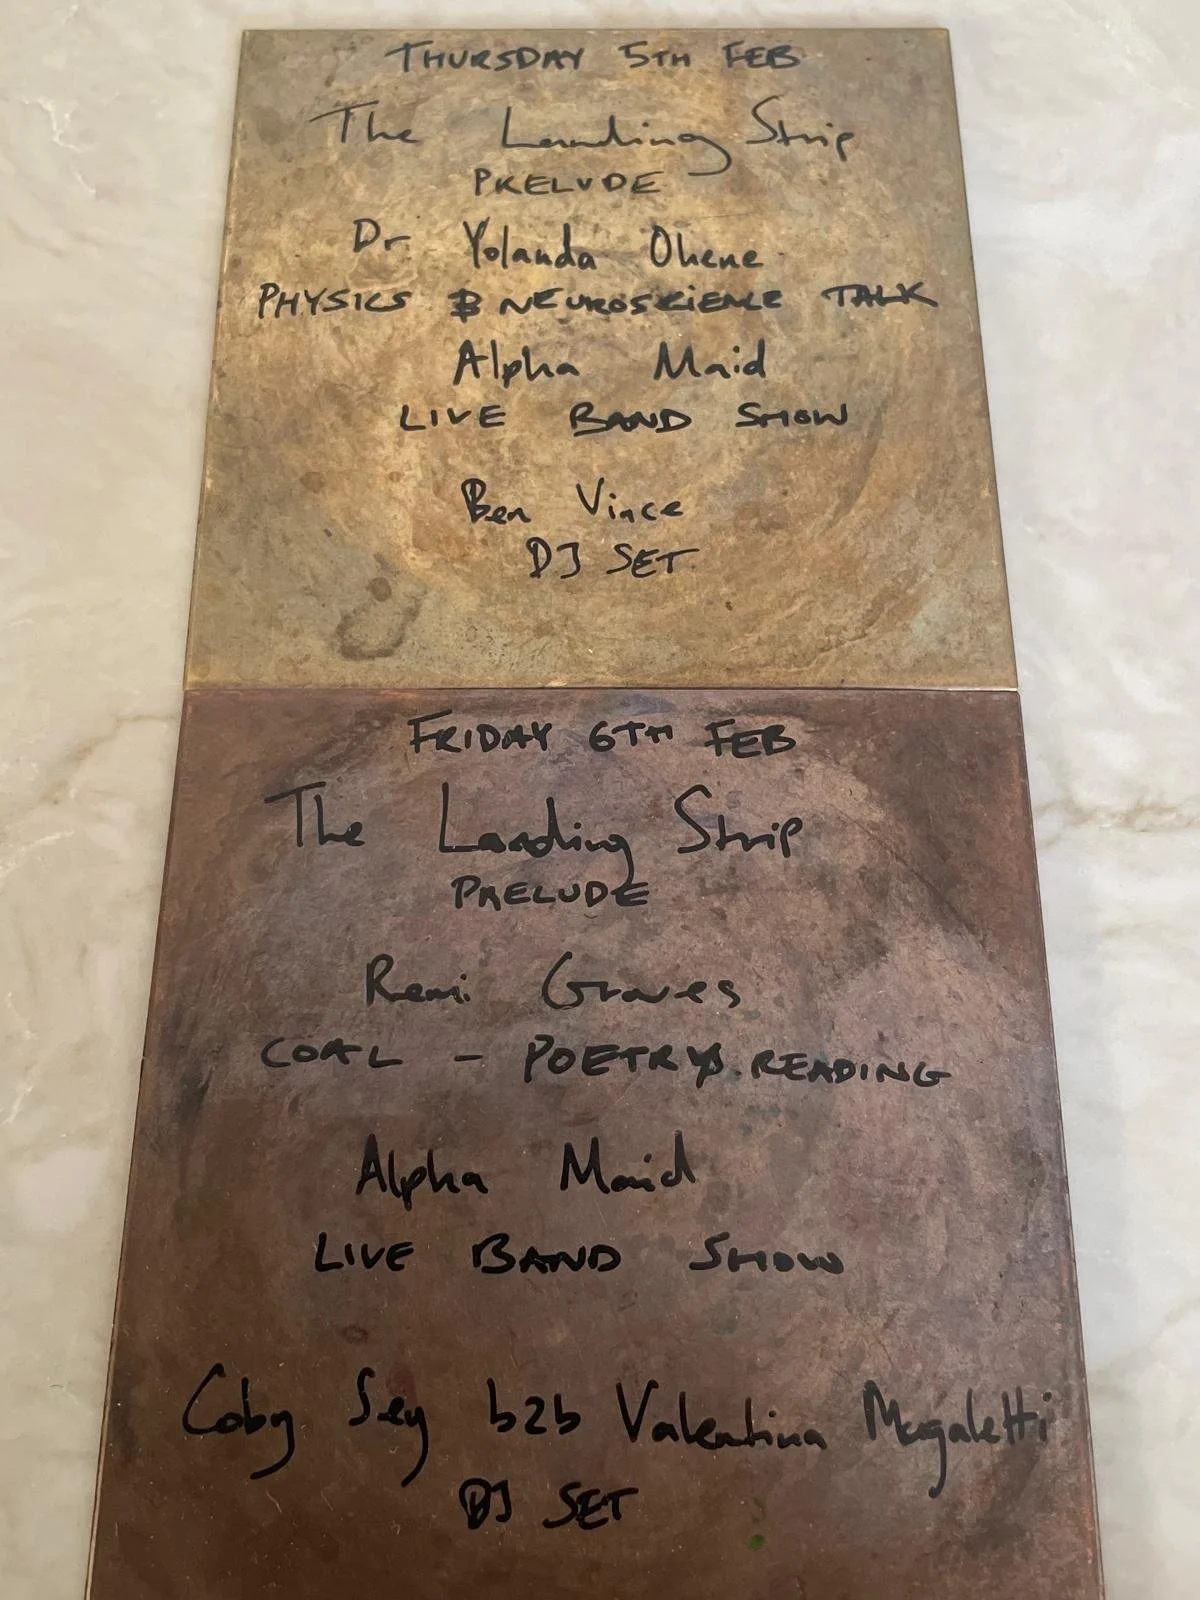 THURSDAY 5TH FEB
The Landing Strip
PRELUDE
Dr. Yolanda Ohene
PHYSICS & NEUROSCIENCE TALK
Alpha Maid
LIVE BAND SHOW
Ben Vince
DJ SET
FRIDAY 6TH FEB
The Landing Strip
PRELUDE
Remi Graves
COAL - POETRY READING
Alpha Maid
LIVE BAND SHOW
Coby Sey b2b Valentina Magaletti
DJ SET